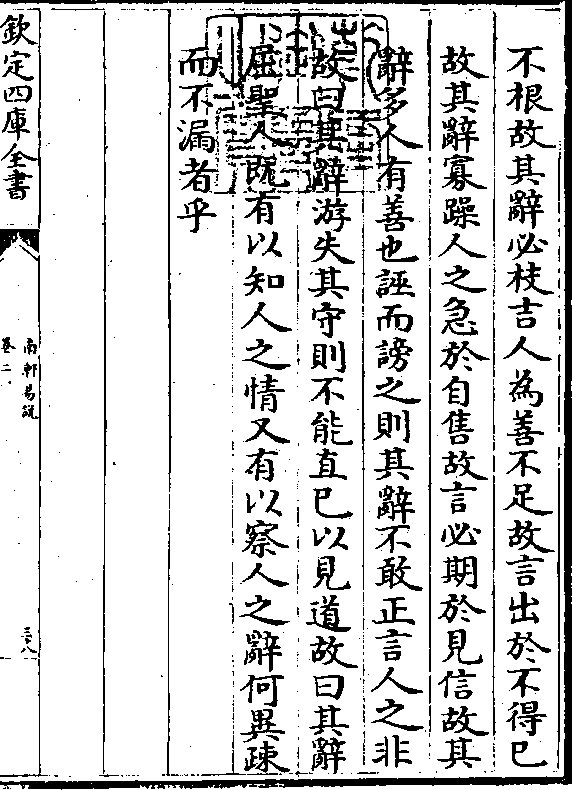 不根故其辭必枝吉人為善不足故言出於不得已
故其辭寡躁人之急於自售故言必期於見信故其
辭多人有善也誣而謗之則其辭不敢正言人之非
故曰其辭游失其守則不能直已以見道故曰其辭
屈聖人既有以知人之情又有以察人之辭何異疎
而不漏者乎
欽定四庫全書
南軒易說
卷二
三十八